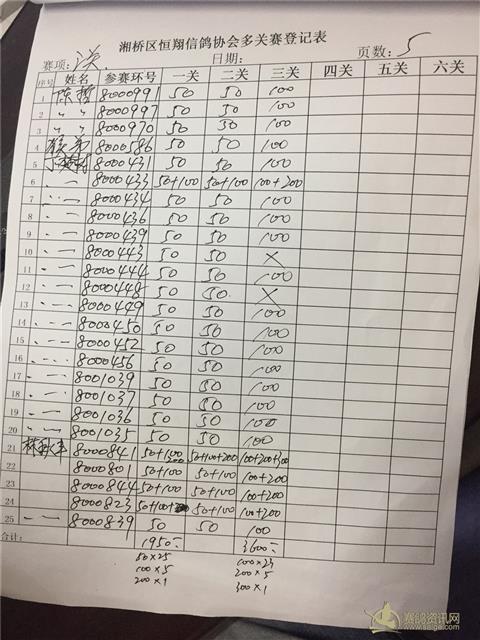 湘桥区恒翔信鸽协会多关赛登记表
赛项: 决 日期: 页数: 5
序号 姓名 参赛环号 一关 二关 三关 四关 五关 六关
1 陈哲 8000991 50 50 100
2 〃 〃 8000997 50 50 100
3 〃 〃 8000970 50 50 100
4 8000586 50 50 100
5 8000431 50 50 100
6 、一 8000433 50+100 50+100 100+200
7 8000434 50 50 100
8 、一 8000436 50 50 100
9 、一 8000439 50 50 100
10 、一 8000443 50 50 ×
11 、一 8000444 50 50 100
12 、一 8000448 50 50 ×
13 、一 8000449 50 50 100
14 、一 8000450 50 50 100
15 、一 8000452 50 50 100
16 8000456 50 50 100
17 、一 8001039 50 50 100
18 、一 8001037 50 50 100
19 、一 8001036 50 50 100
20 、一 8001035 50 50 100
21 8000841 50+100 200 50+100+200 100+200+300
22 8000801 50+100 50+100 100+200
23 8000844 50+100 50+100 100+200
24 8000823 50+100 50+100 100+200
25 一 一 8000839 50 50 100
合计: 1950 3600
50×25 100×23
100×5 200×5
200×1 300×1
赛鸽资讯网
www.saige.com